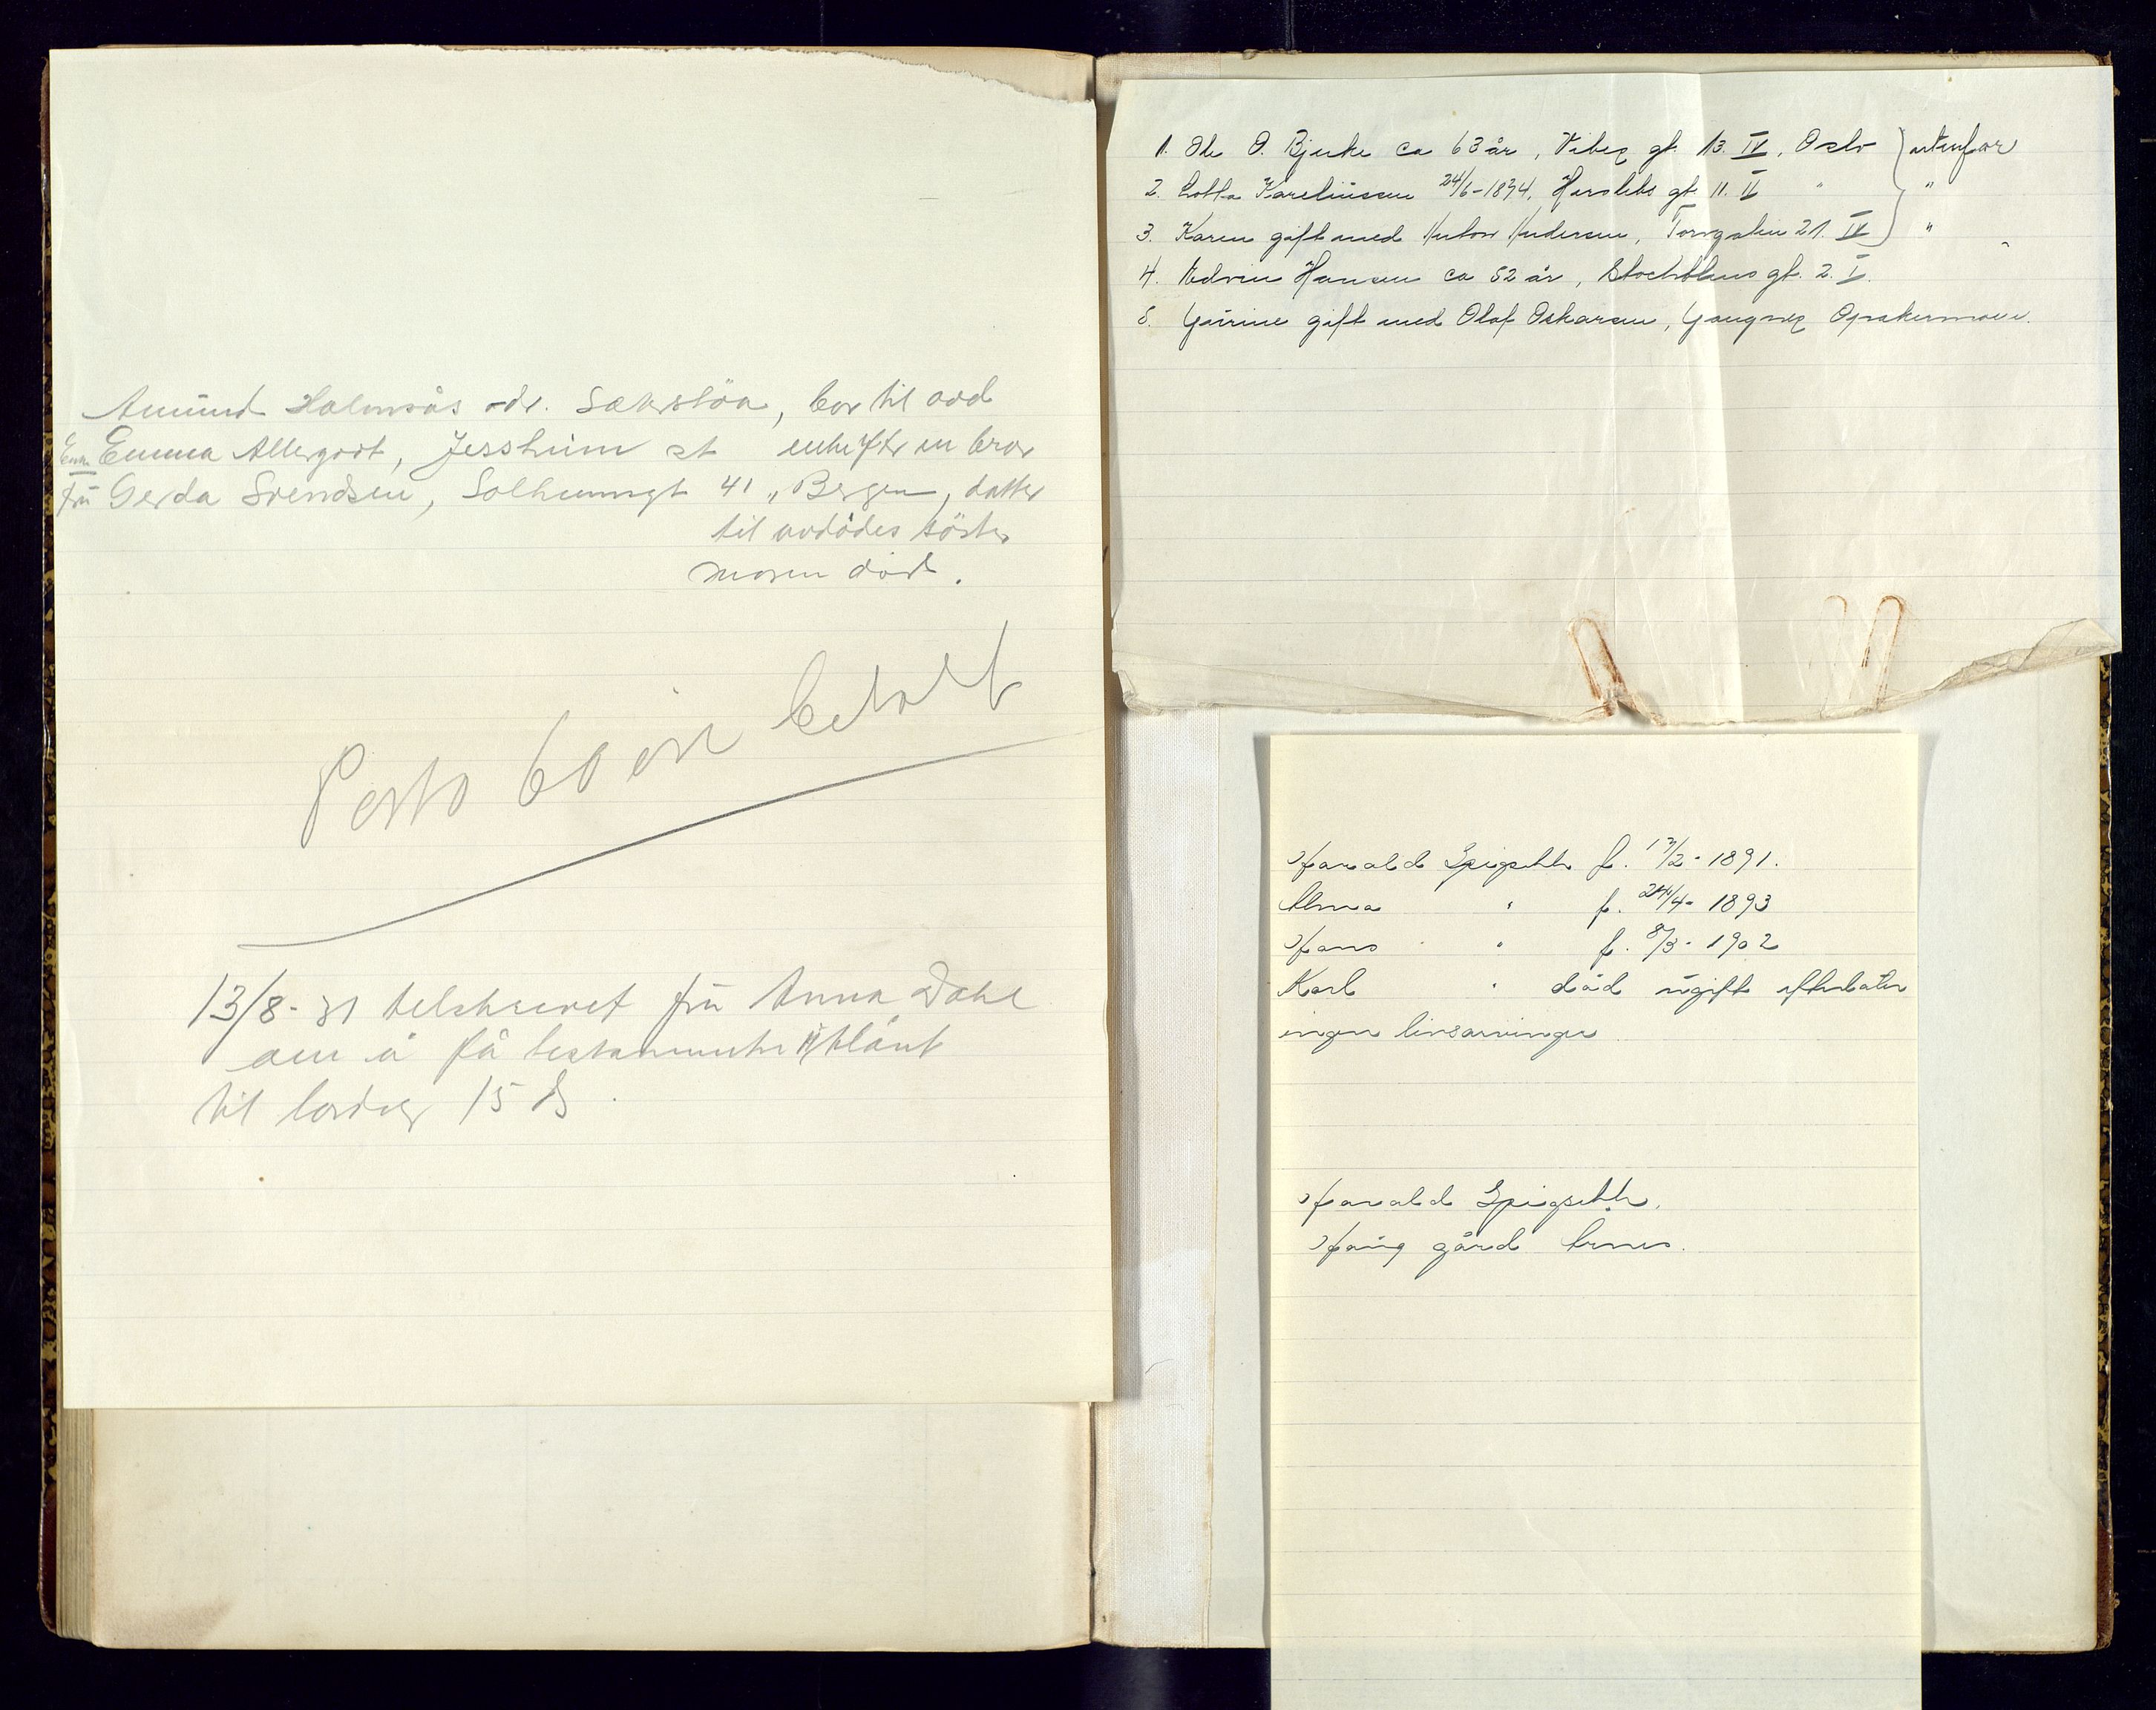 Amund Holmsås adr. Sakslöa, bor til avd
Enke Emma Allergodt, Jessheim st enke efter en bror
Fru Gerda Svendsen, Solheimsgt 41, Bergen, datter
til avdødes söster
moren död.
Porto 60 öre betalt
13/8-31 tilskrevet fru Anna Dahl
om å få testamente utlånt
til lördag 15 ds
1. Ole O. Bjerke ca 63 år, Vibes gt. 13. IV, Oslo utenfor
2. Lotta Kareliussen 24/6-1874, Herslebs gt. 11. II " "
3. Karen gift med Anton Andersen, Torvgaten 21. IV "
4. Edvin Hansen ca 52 år, Stockflets gt. 2. I.
5. Gurine gift med Olaf Oskarsen, Opakermoen.
Harald Spigseth f. 17/2-1891.
Alma " f. 24/4-1893
Hans " f. 8/3-1902
Karl " död ugift efterlater
ingen livsarvinger
Harald Spigseth.
Haug gård Arnes.